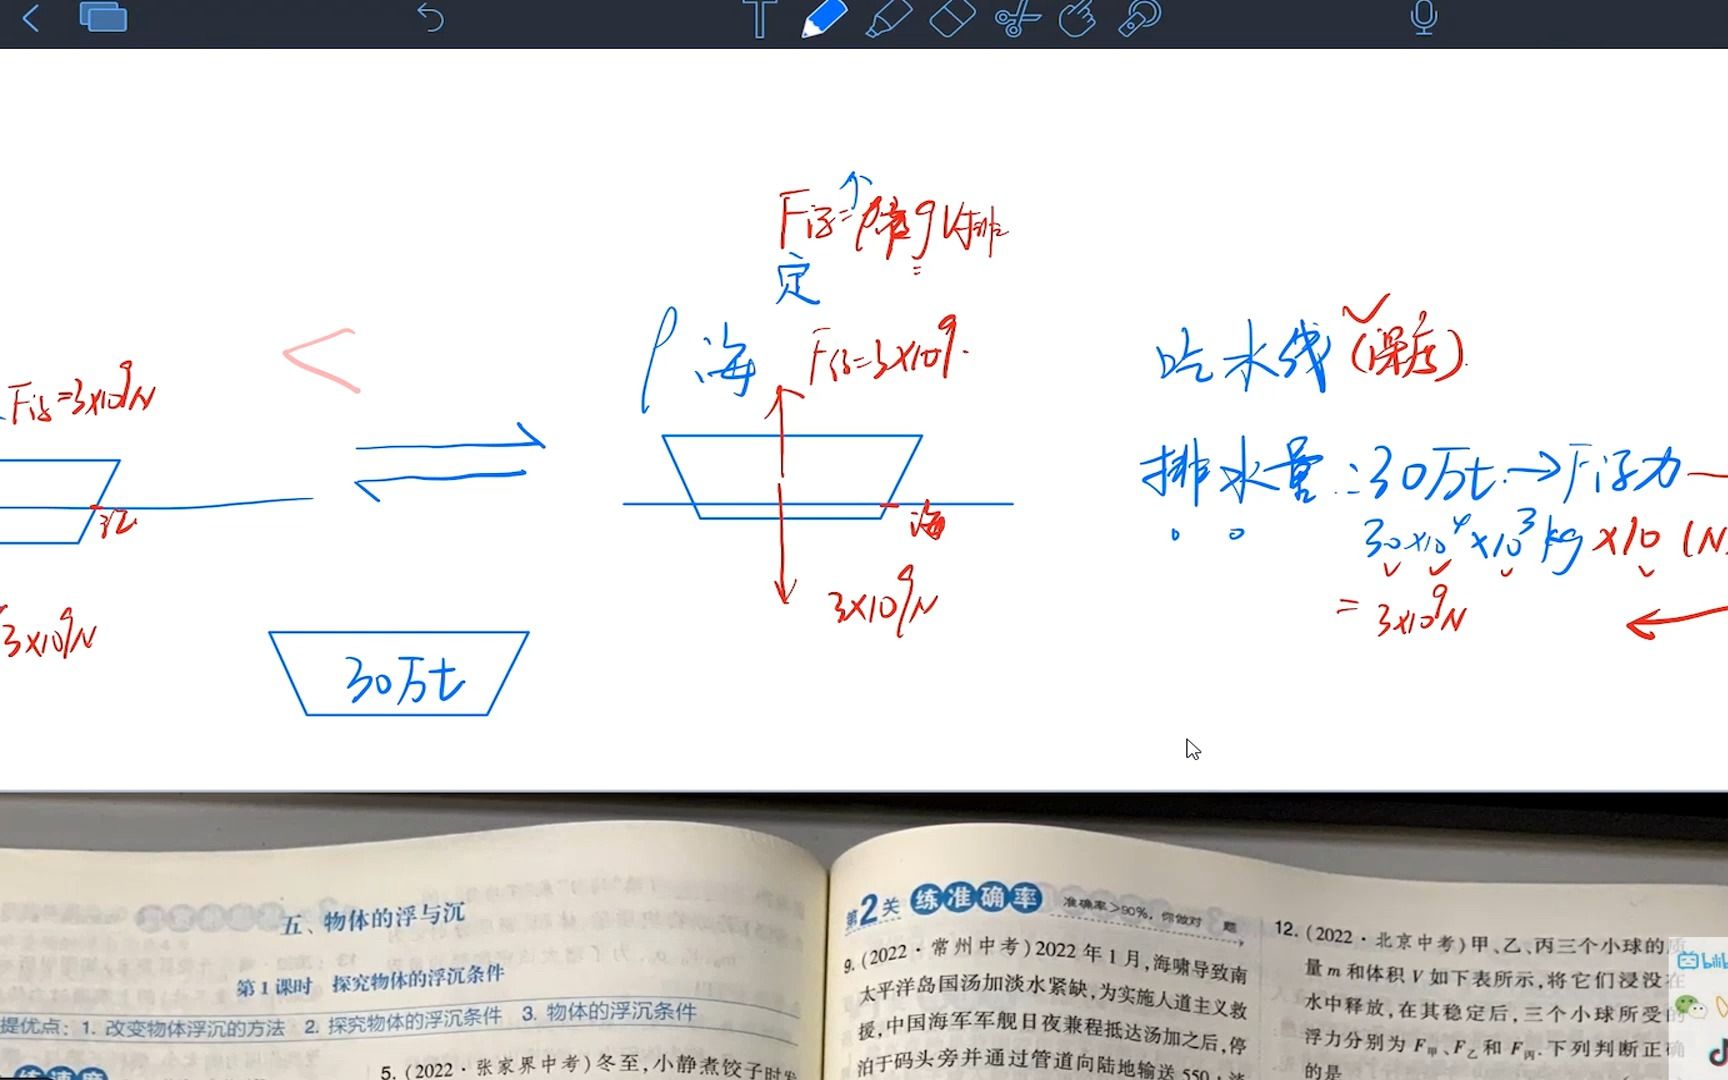 F浮=ρ液gV排
定
F浮=3×10⁹N
ρ海
F浮=3×10⁹.
吃水线(深度).
江
海
排水量:30万t.→F浮力
30×10⁴×10³kg×10(N
3×10⁹N
3×10⁹N
=3×10⁹N
30万t
五、物体的浮与沉
第1课时 探究物体的浮沉条件
提优点:1. 改变物体浮沉的方法 2. 探究物体的浮沉条件 3. 物体的浮沉条件
练速度
5. (2022·张家界中考)冬至,小静煮饺子时发
第2关 练准确率 准确率>90%,你做对 题
9. (2022·常州中考)2022年1月,海啸导致南
太平洋岛国汤加淡水紧缺,为实施人道主义救
援,中国海军军舰日夜兼程抵达汤加之后,停
泊于码头旁并通过管道向陆地输送550
12. (2022·北京中考)甲、乙、丙三个小球的质
量m和体积V如下表所示,将它们浸没在
水中释放,在其稳定后,三个小球所受的
浮力分别为F甲、F乙和F丙.下列判断正确
的是
bilib